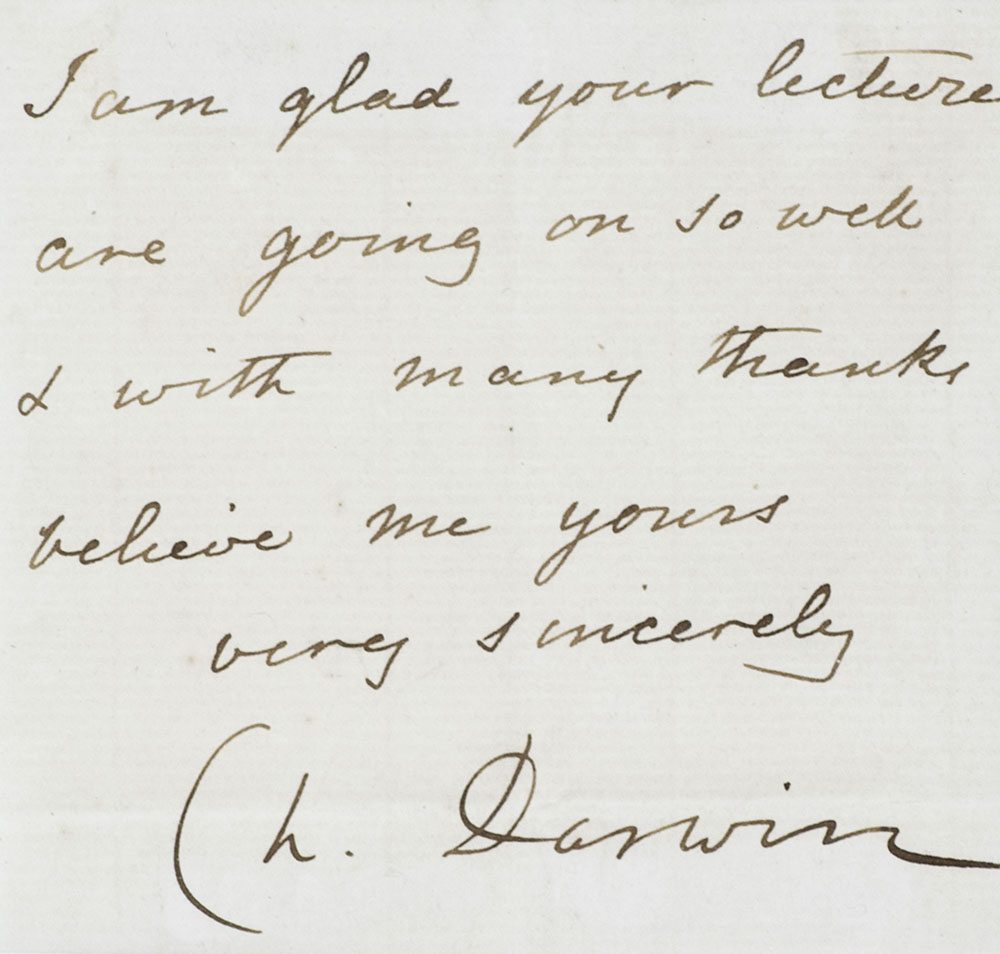 I am glad your lecture
are going on so well
& with many thanks
believe me yours
very sincerely
Ch. Darwin